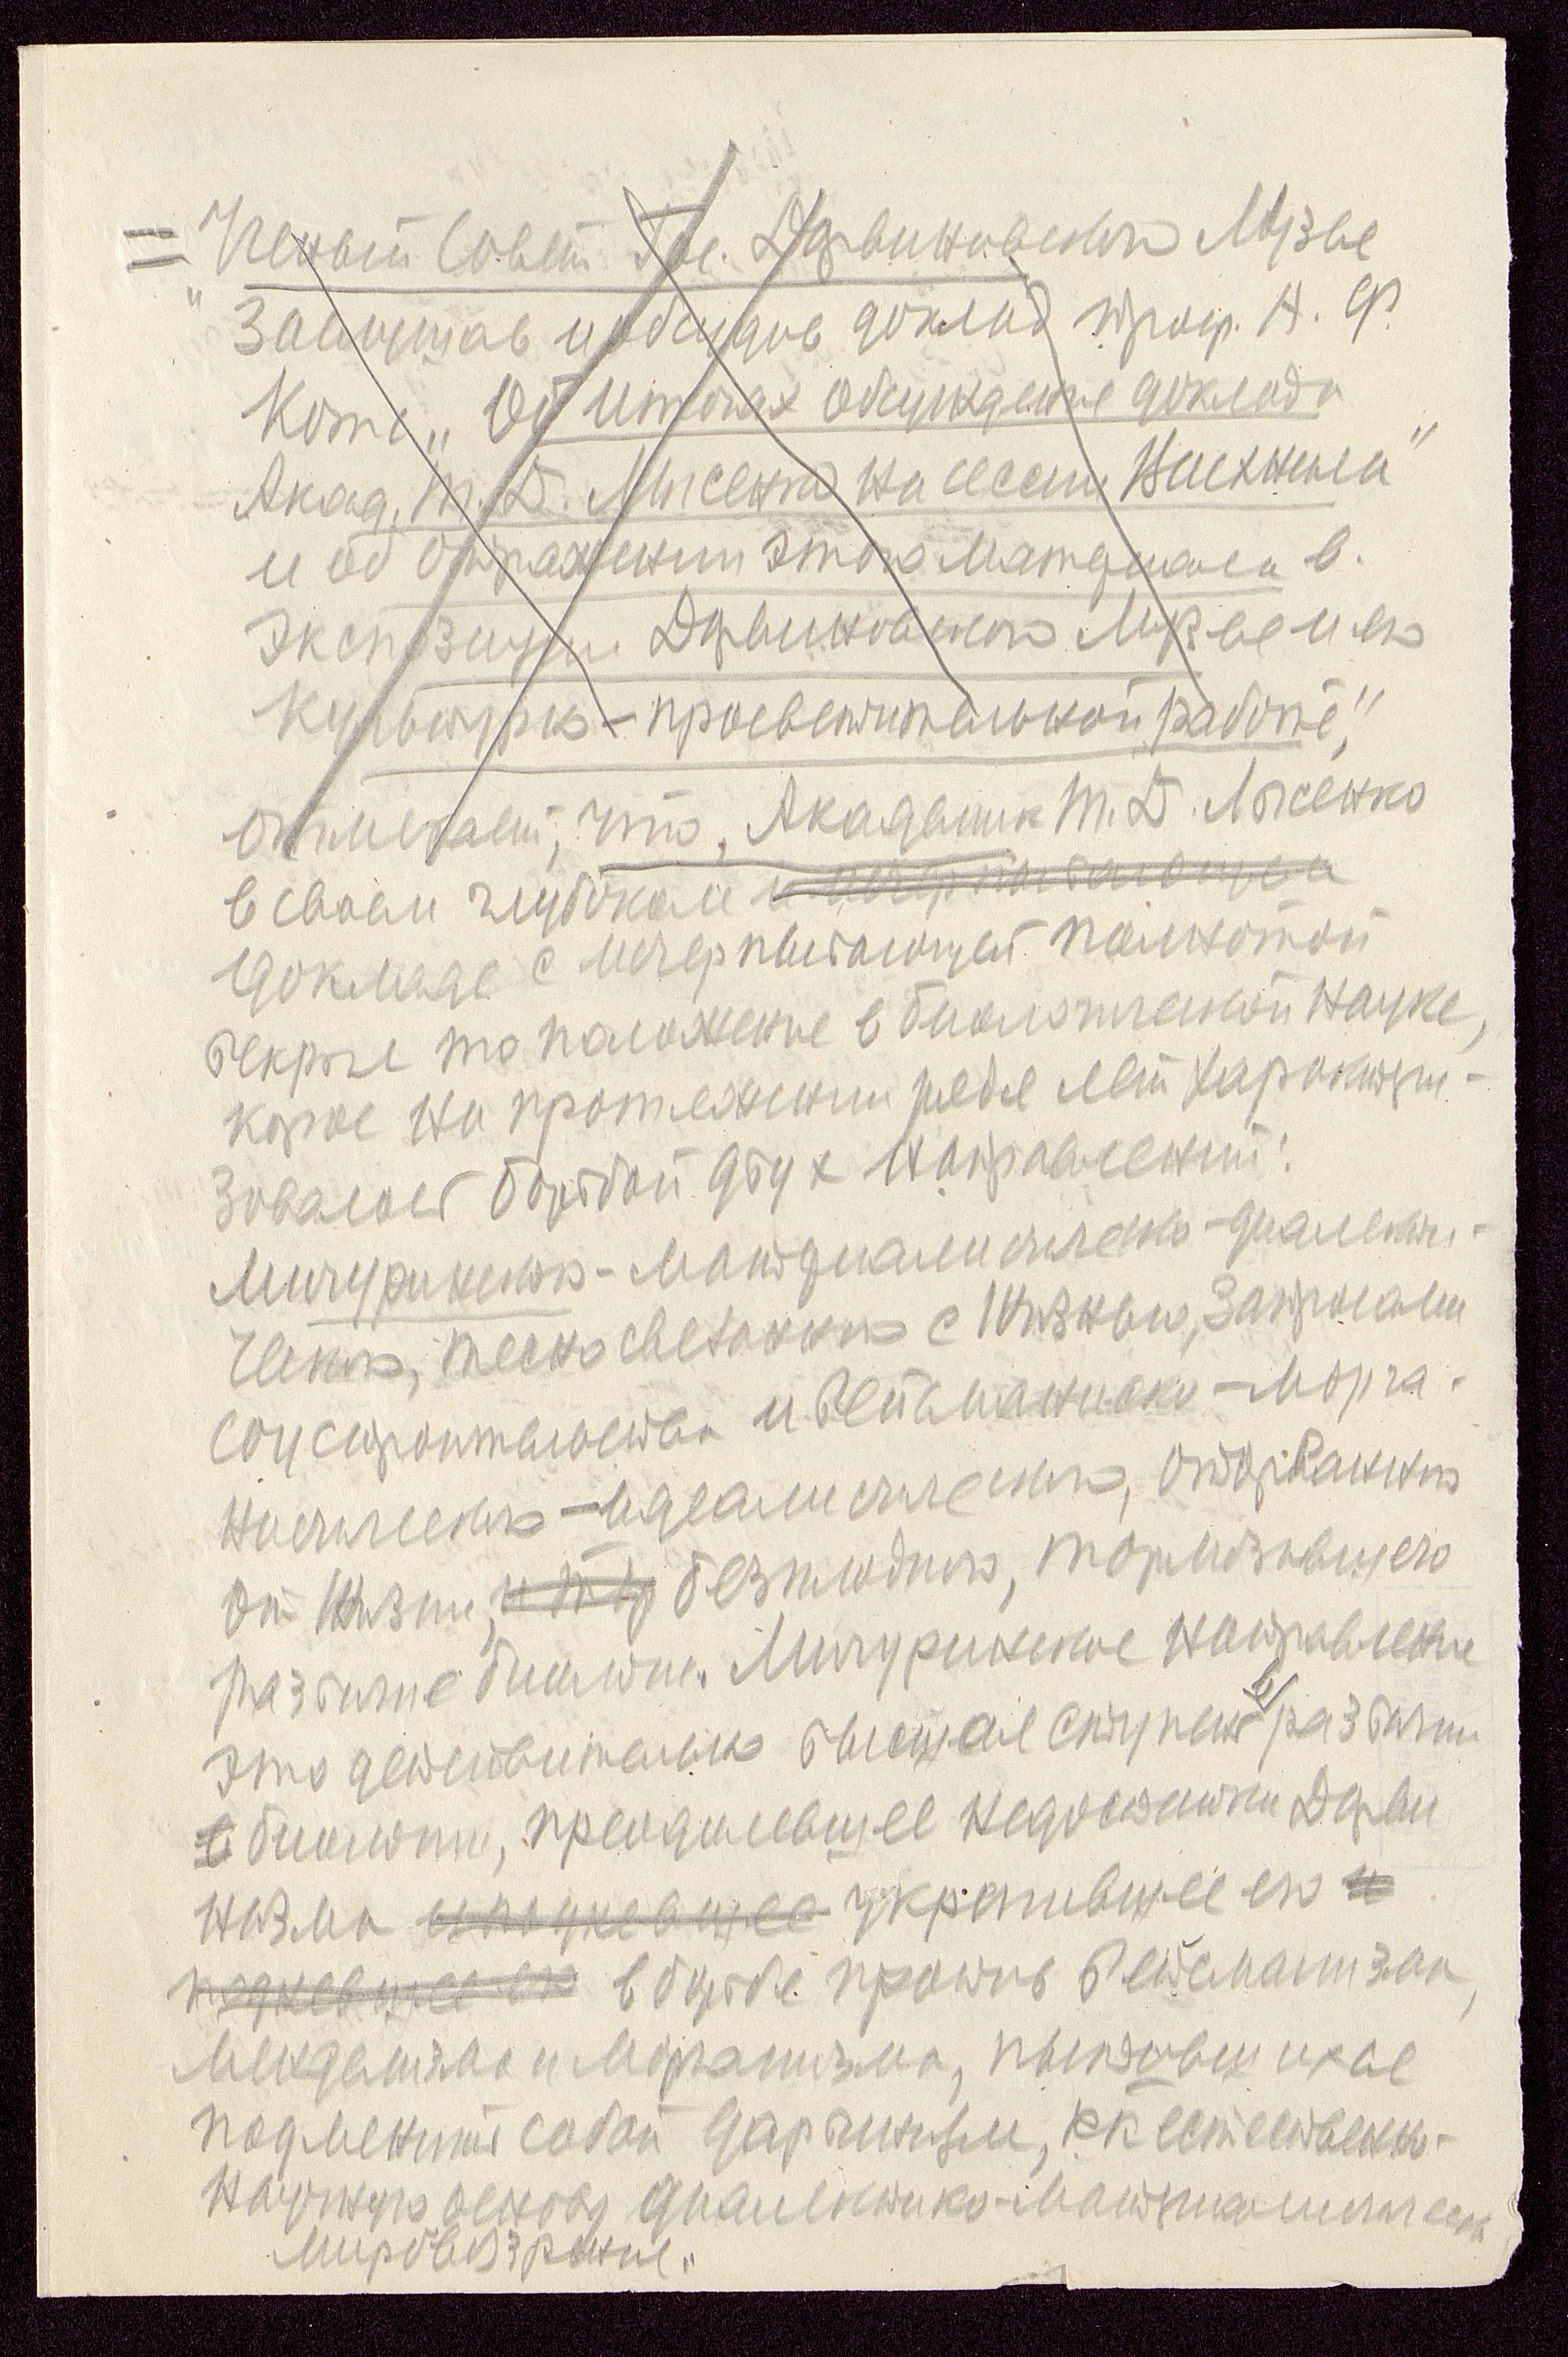 = Ученый Совет Гос. Дарвиновского Музея
"Заслушав и обсудив доклад проф. А. Ф.
Котс „Об итогах обсуждения доклада
Акад. Т. Д. Лысенко на сессии ВАСХНИЛа"
и об отражении этого материала в
экспозиции Дарвиновского Музея и его
культурно-просветительной работе",
отмечает, что, Академик Т. Д. Лысенко
в своем глубоком и исчерпывающем
докладе с исчерпывающей полнотой
вскрыл то положение в биологической науке,
которое на протяжении ряда лет характери-
зовалось борьбой двух направлений:
Мичуринского-материалистическо-диалекти-
ческого, тесно связанного с жизнью, запросами
соцстроительства и Вейсманиско-морга-
нистического-идеалистического, оторванного
от жизни, и тор бесплодного, тормозившего
развитие биологии. Мичуринское направление
это действительно высшая ступень развития
в биологии, преодолевшее недостатки Дарви
низма укрепившее его и
поднявшее его в борьбе против Вейсманизма,
Менделизма и Морганизма, пытавшихся
подменить собой дарвинизм, как естественно-
научную основу диалектико-материалистическ
мировоззрения.